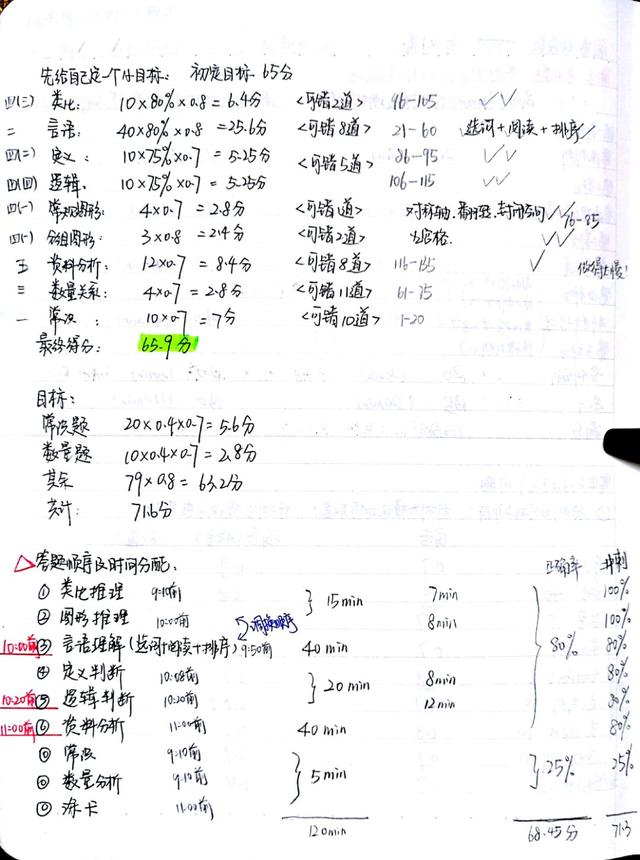 先给自己定一个小目标：初定目标 65分
四(三) 类比： 10×80%×0.8 = 6.4分 <可错2道> 96-105 ✓✓
二 言语： 40×80%×0.8 = 25.6分 <可错8道> 21-60 选词+阅读+排序✓
四(二) 定义： 10×75%×0.7 = 5.25分 <可错5道> 86-95 ✓✓
四(四) 逻辑： 10×75%×0.7 = 5.25分 106-115 ✓✓
四(一) 常规图形： 4×0.7 = 2.8分 <可错1道> 对称轴、封闭空间 ✓✓ 76-85
四(一) 分组图形： 3×0.8 = 2.4分 <可错2道> ✓✓
五 资料分析： 12×0.7 = 8.4分 <可错8道> 116-135 ✓ 做得太慢!
三 数量关系： 4×0.7 = 2.8分 <可错11道> 61-75
一 常识： 10×0.7 = 7分 <可错10道> 1-20
最终得分： 65.9分
目标：
常识题 20×0.4×0.7 = 5.6分
数量题 10×0.4×0.7 = 2.8分
其余 79×0.8 = 63.2分
共计： 71.6分
△答题顺序及时间分配： 正确率 冲刺
① 类比推理 9:10前 15min 7min 100%
② 图形推理 10:00前 8min 100%
10:00前 ③ 言语理解(选词+阅读+排序) 9:50前 调换顺序 40min 80% 80%
④ 定义判断 10:08前 20min 8min 80%
10:20前 ⑤ 逻辑判断 10:20前 12min 80%
11:00前 ⑥ 资料分析 11:00前 40min 80%
⓪ 常识 9:10前 5min 25% 25%
⓪ 数量分析 9:10前
⓪ 涂卡 11:00前
120min 68.45分 71.3